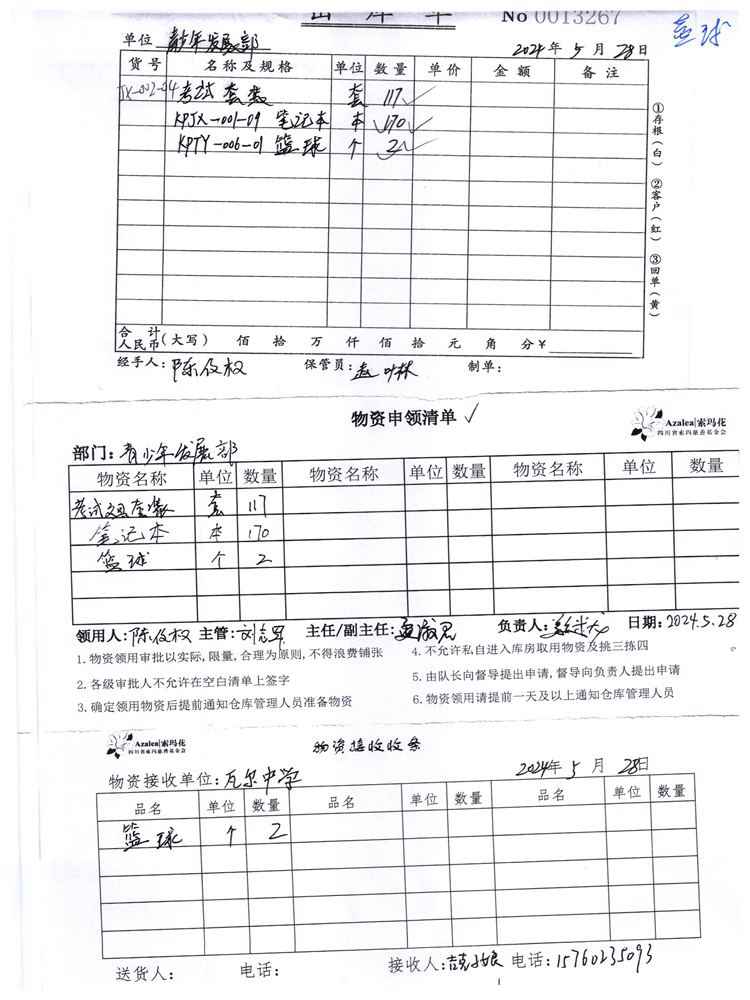 出库单 No 0013267 篮球
单位 青少年发展部 2024年5月28日
货号 名称及规格 单位 数量 单价 金额 备注
JX-002-04 考试套装 套 117
KPJX-001-09 笔记本 本 170
KPTY-006-01 篮球 个 2
①存根(白) ②客户(红) ③回单(黄)
合计人民币(大写) 佰 拾 万 仟 佰 拾 元 角 分¥
经手人: 陈俊权 保管员: 制单:
物资申领清单
Azalea|索玛花
四川省索玛慈善基金会
部门: 青少年发展部
物资名称 单位 数量 物资名称 单位 数量 物资名称 单位 数量
考试文具套装 套 117
笔记本 本 170
篮球 个 2
领用人: 陈俊权 主管: 主任/副主任: 负责人: 日期: 2024.5.28
1. 物资领用审批以实际,限量,合理为原则,不得浪费铺张 4. 不允许私自进入库房取用物资及挑三拣四
2. 各级审批人不允许在空白清单上签字 5. 由队长向督导提出申请,督导向负责人提出申请
3. 确定领用物资后提前通知仓库管理人员准备物资 6. 物资领用请提前一天及以上通知仓库管理人员
Azalea|索玛花
四川省索玛慈善基金会
物资接收收条
物资接收单位: 瓦尔中学 2024年5月28日
品名 单位 数量 品名 单位 数量 品名 单位 数量
篮球 个 2
送货人: 电话: 接收人: 电话: 15760235093